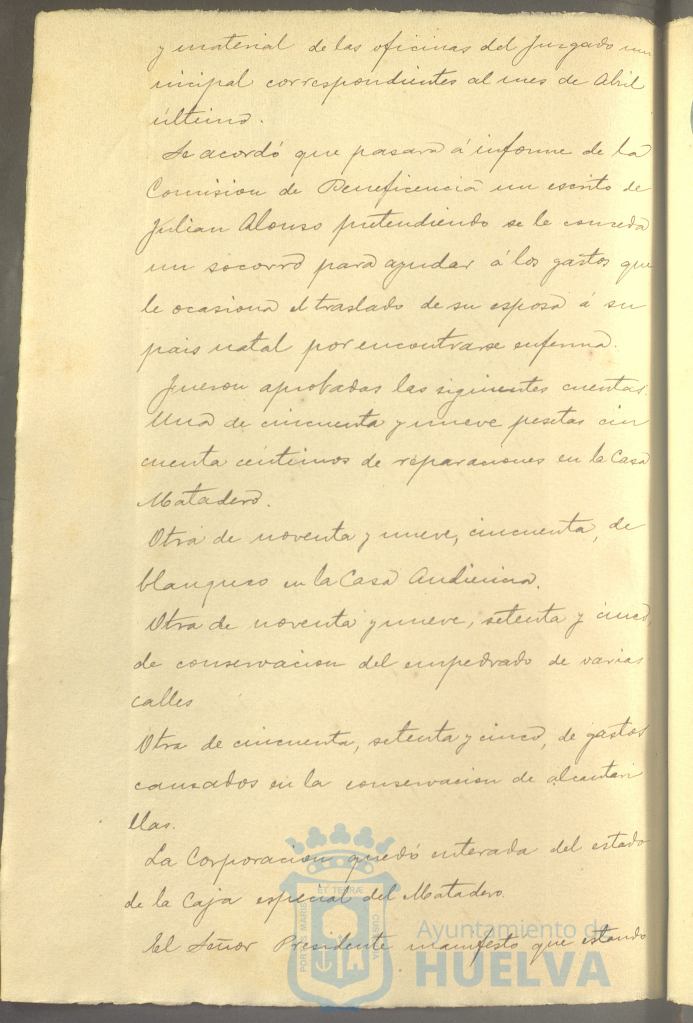 y material de las oficinas del Juzgado mu
nicipal correspondientes al mes de Abril
último.
Se acordó que pasara á informe de la
Comision de Beneficencia un escrito de
Julian Alonso pretendiendo se le conceda
un socorro para ayudar á los gastos que
le ocasiona el traslado de su esposa á su
pais natal por encontrarse enferma.
Fueron aprobadas las siguientes cuentas.
Una de cincuenta y nueve pesetas cin
cuenta centimos de reparaciones en la Casa
Matadero.
Otra de noventa y nueve, cincuenta, de
blanqueo en la Casa Audiencia.
Otra de noventa y nueve, setenta y cinco,
de conservacion del empedrado de varias
calles
Otra de cincuenta, setenta y cinco, de gastos
causados en la conservacion de alcantari
llas.
La Corporacion quedó enterada del estado
de la Caja especial del Matadero.
El Señor Presidente manifestó que estando
PORTUS MARIS ET TERRÆ CUSTODIA
Ayuntamiento de
HUELVA